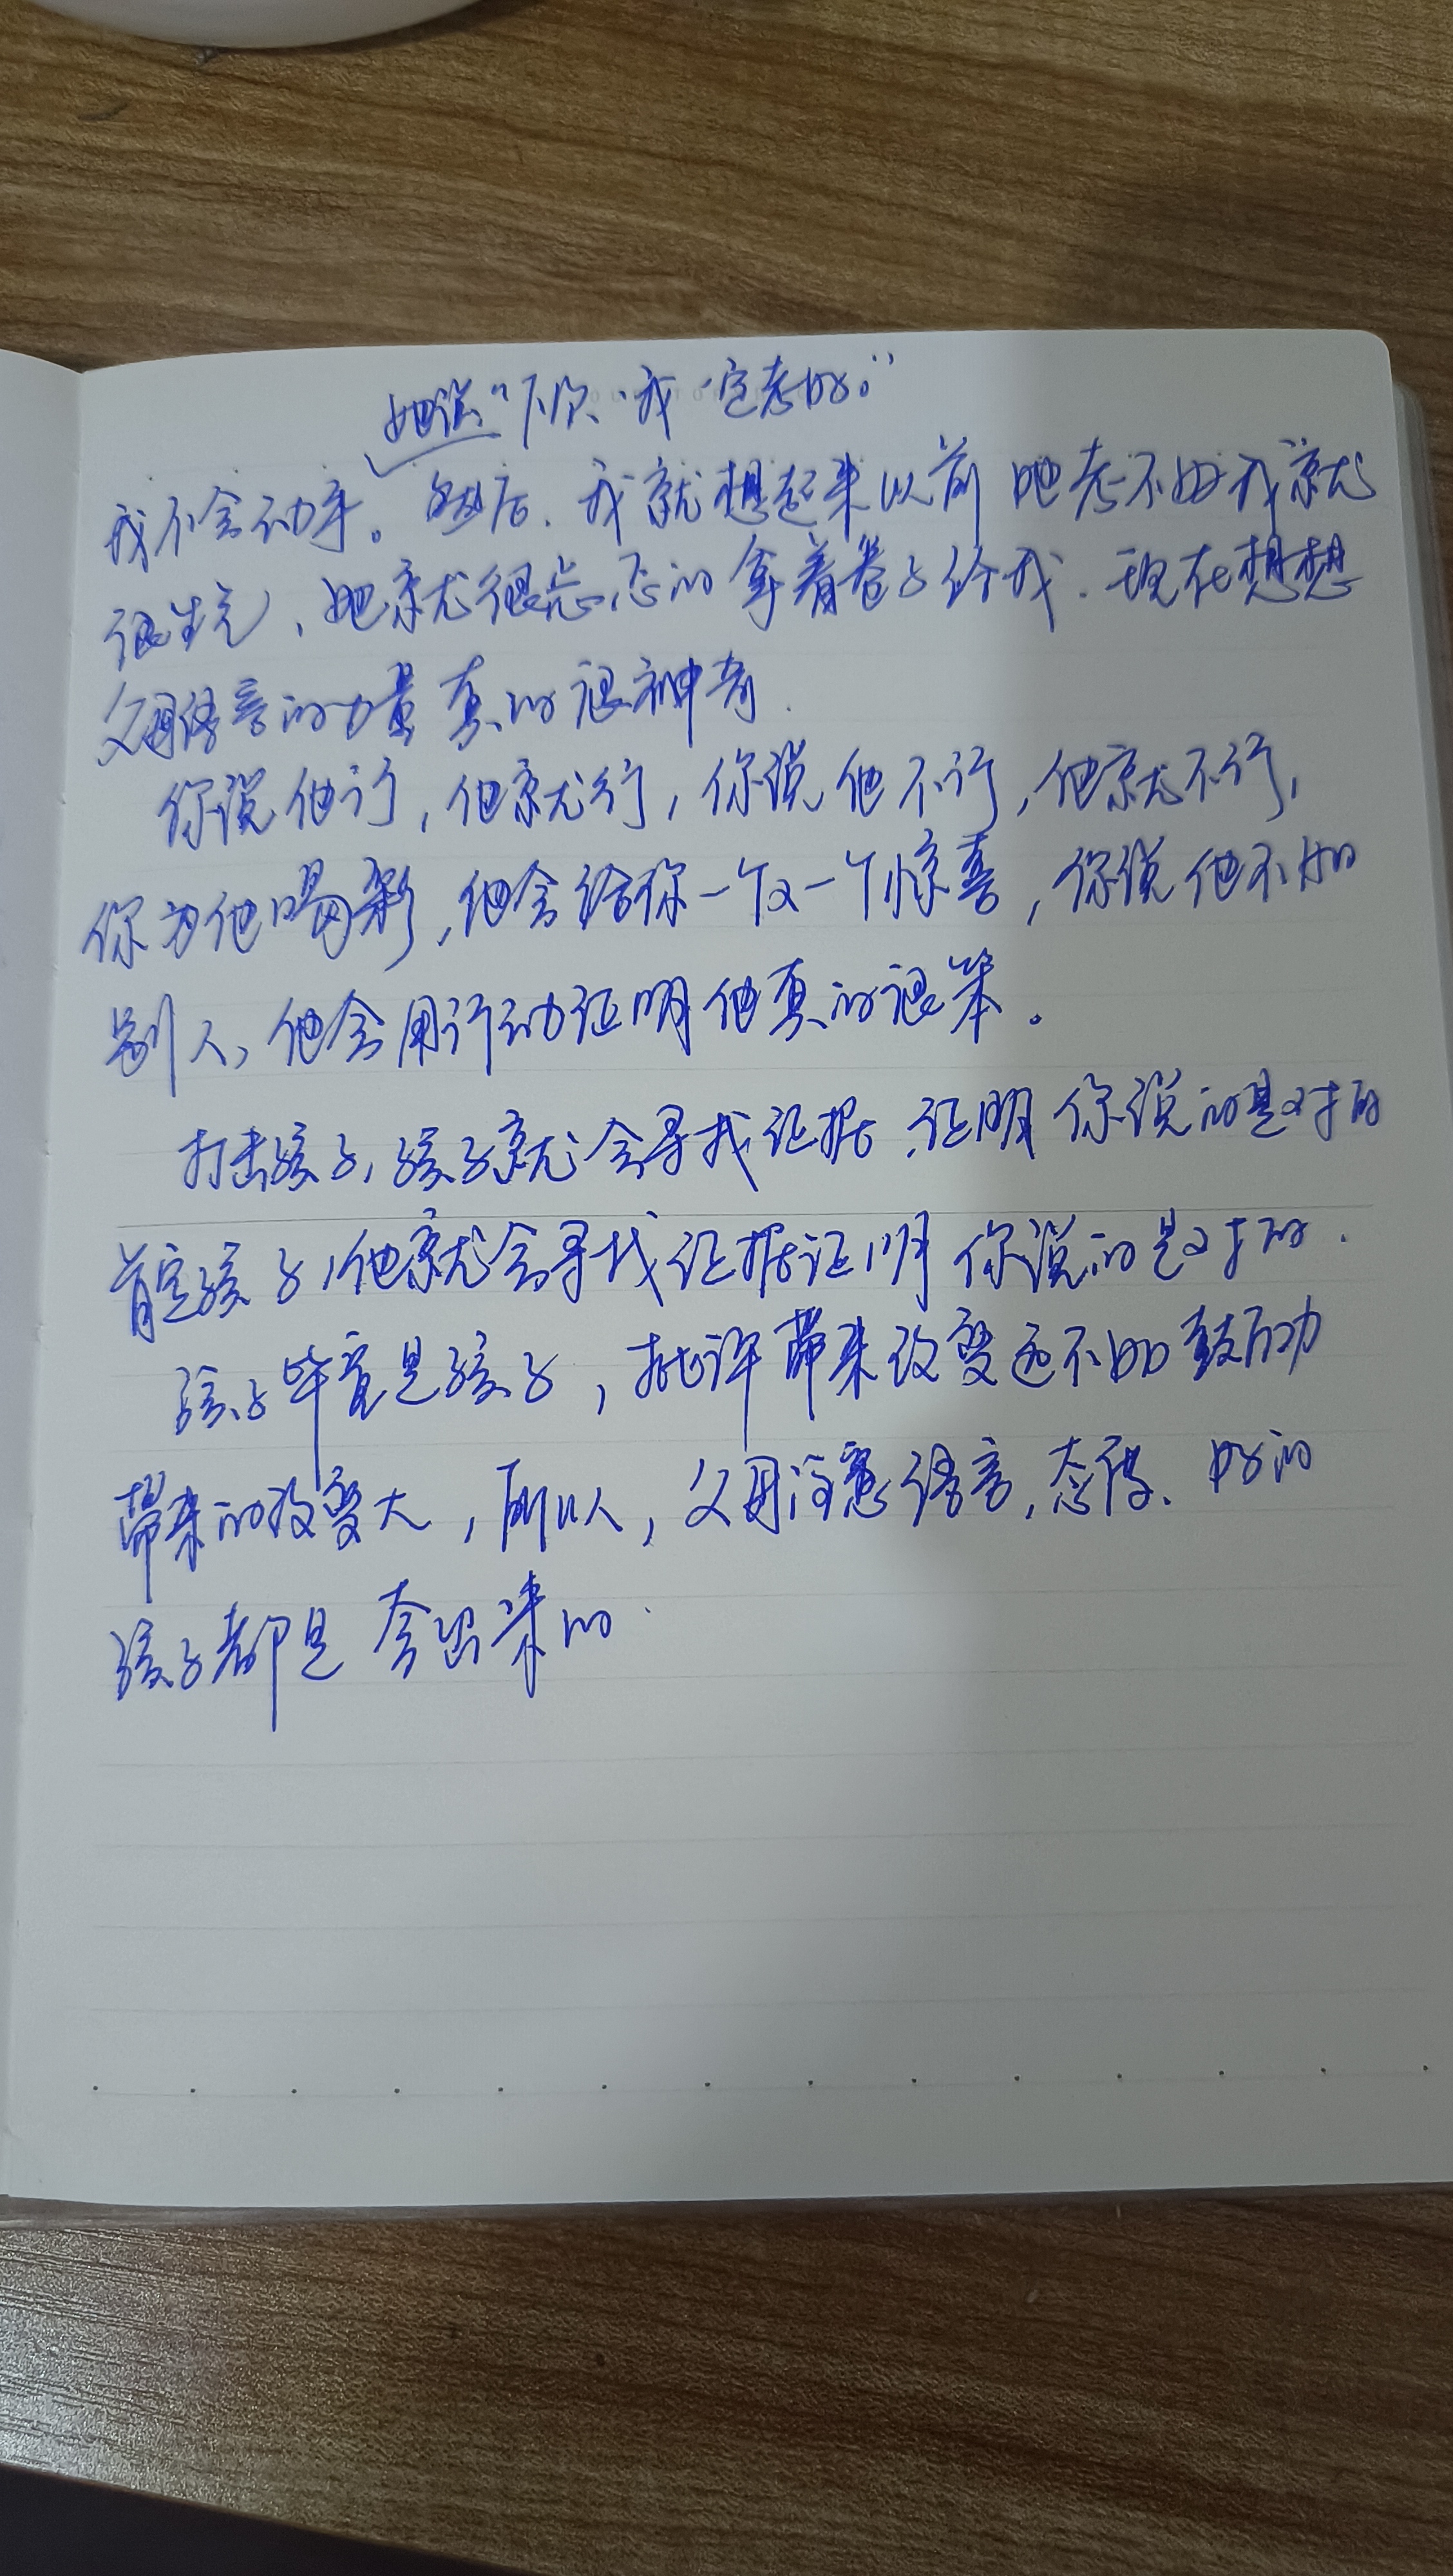 她说"下次、我一定考好。"
我不会动手。然后、我就想起来以前她考不好我就
很生气、她就很忐忑的拿着卷子给我.现在想想
父母语言的力量真的很神奇.
你说他行,他就行,你说他不行,他就不行,
你为他喝彩,他会给你一个又一个惊喜,你说他不如
别人,他会用行动证明他真的很笨。
打击孩子,孩子就会寻找证据、证明你说的是对的
肯定孩子,他就会寻找证据证明你说的是对的.
孩子毕竟是孩子,批评带来改变远不如鼓励
带来的改变大,所以,父母注意语言,态度、好的
孩子都是夸出来的.